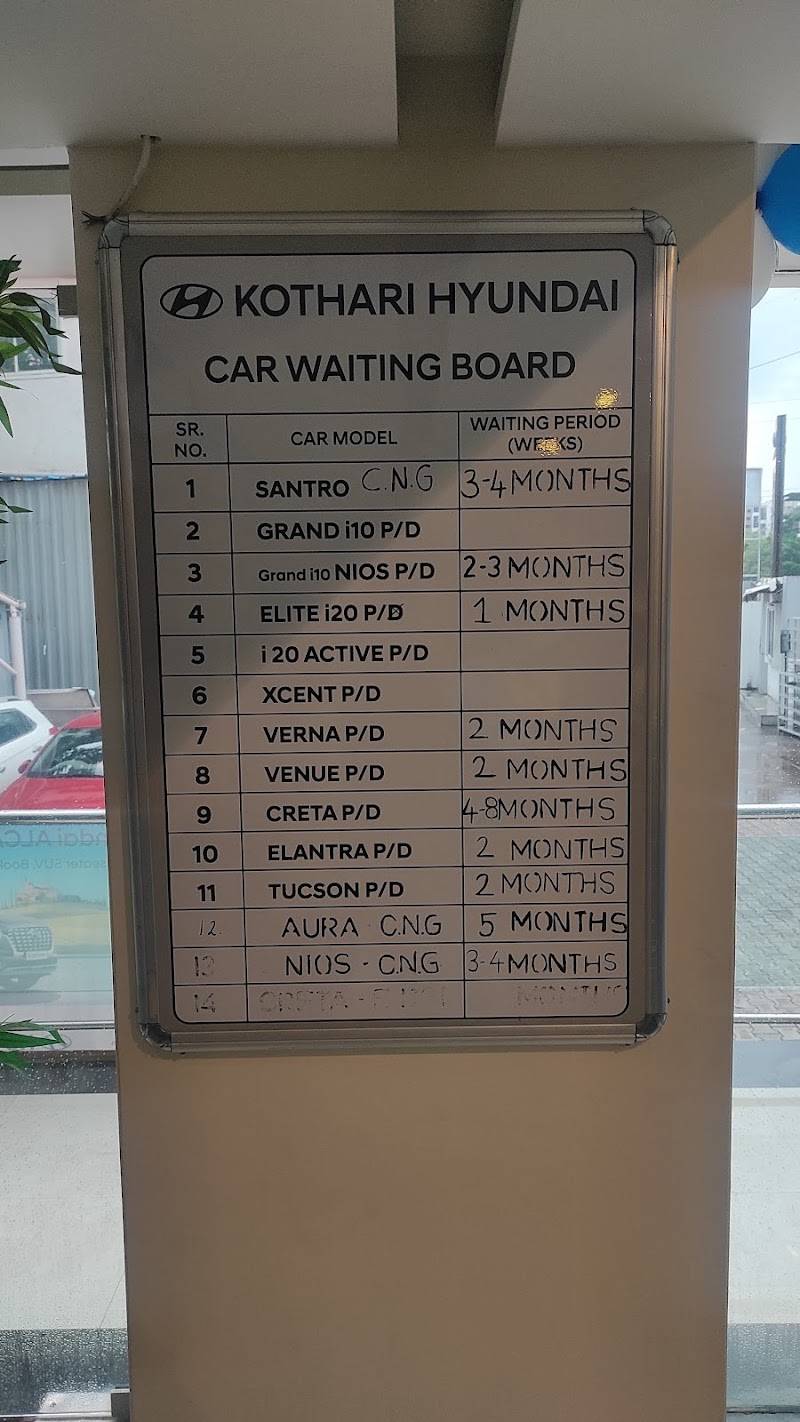 KOTHARI HYUNDAI
CAR WAITING BOARD
SR. NO. CAR MODEL WAITING PERIOD (WEEKS)
1 SANTRO C.N.G 3-4 MONTHS
2 GRAND i10 P/D
3 Grand i10 NIOS P/D 2-3 MONTHS
4 ELITE i20 P/D 1 MONTHS
5 i 20 ACTIVE P/D
6 XCENT P/D
7 VERNA P/D 2 MONTHS
8 VENUE P/D 2 MONTHS
9 CRETA P/D 4-8 MONTHS
10 ELANTRA P/D 2 MONTHS
11 TUCSON P/D 2 MONTHS
12. AURA C.N.G 5 MONTHS
13 NIOS - C.N.G 3-4 MONTHS
14 MONTHS